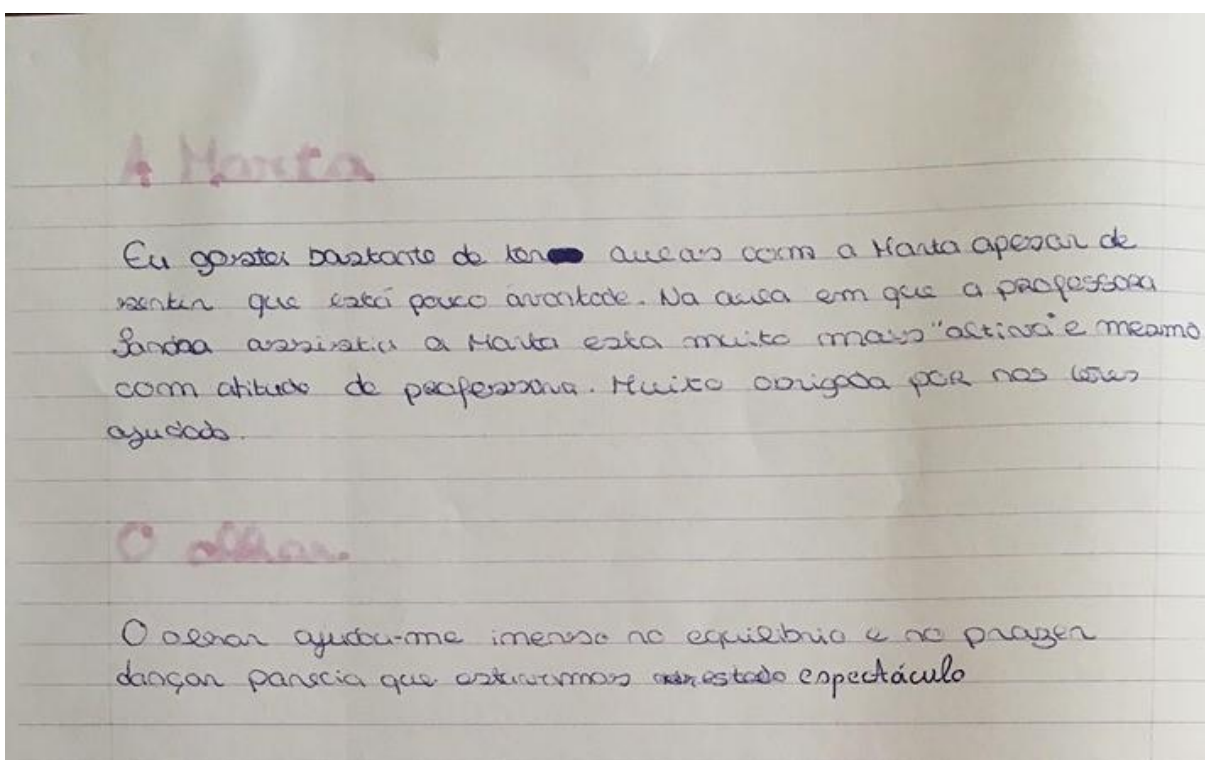 A Marta
Eu gostei bastante de ter aulas com a Marta apesar de
sentir que está pouco àvontade. Na aula em que a professora
Sandra assistiu a Marta esta muito mais "activa" e mesmo
com atitude de professora. Muito obrigada por nos
ajudado.
O olhar
O olhar ajudou-me imenso no equilibrio e no prazer
dançar parecia que estivemos estado espectáculo